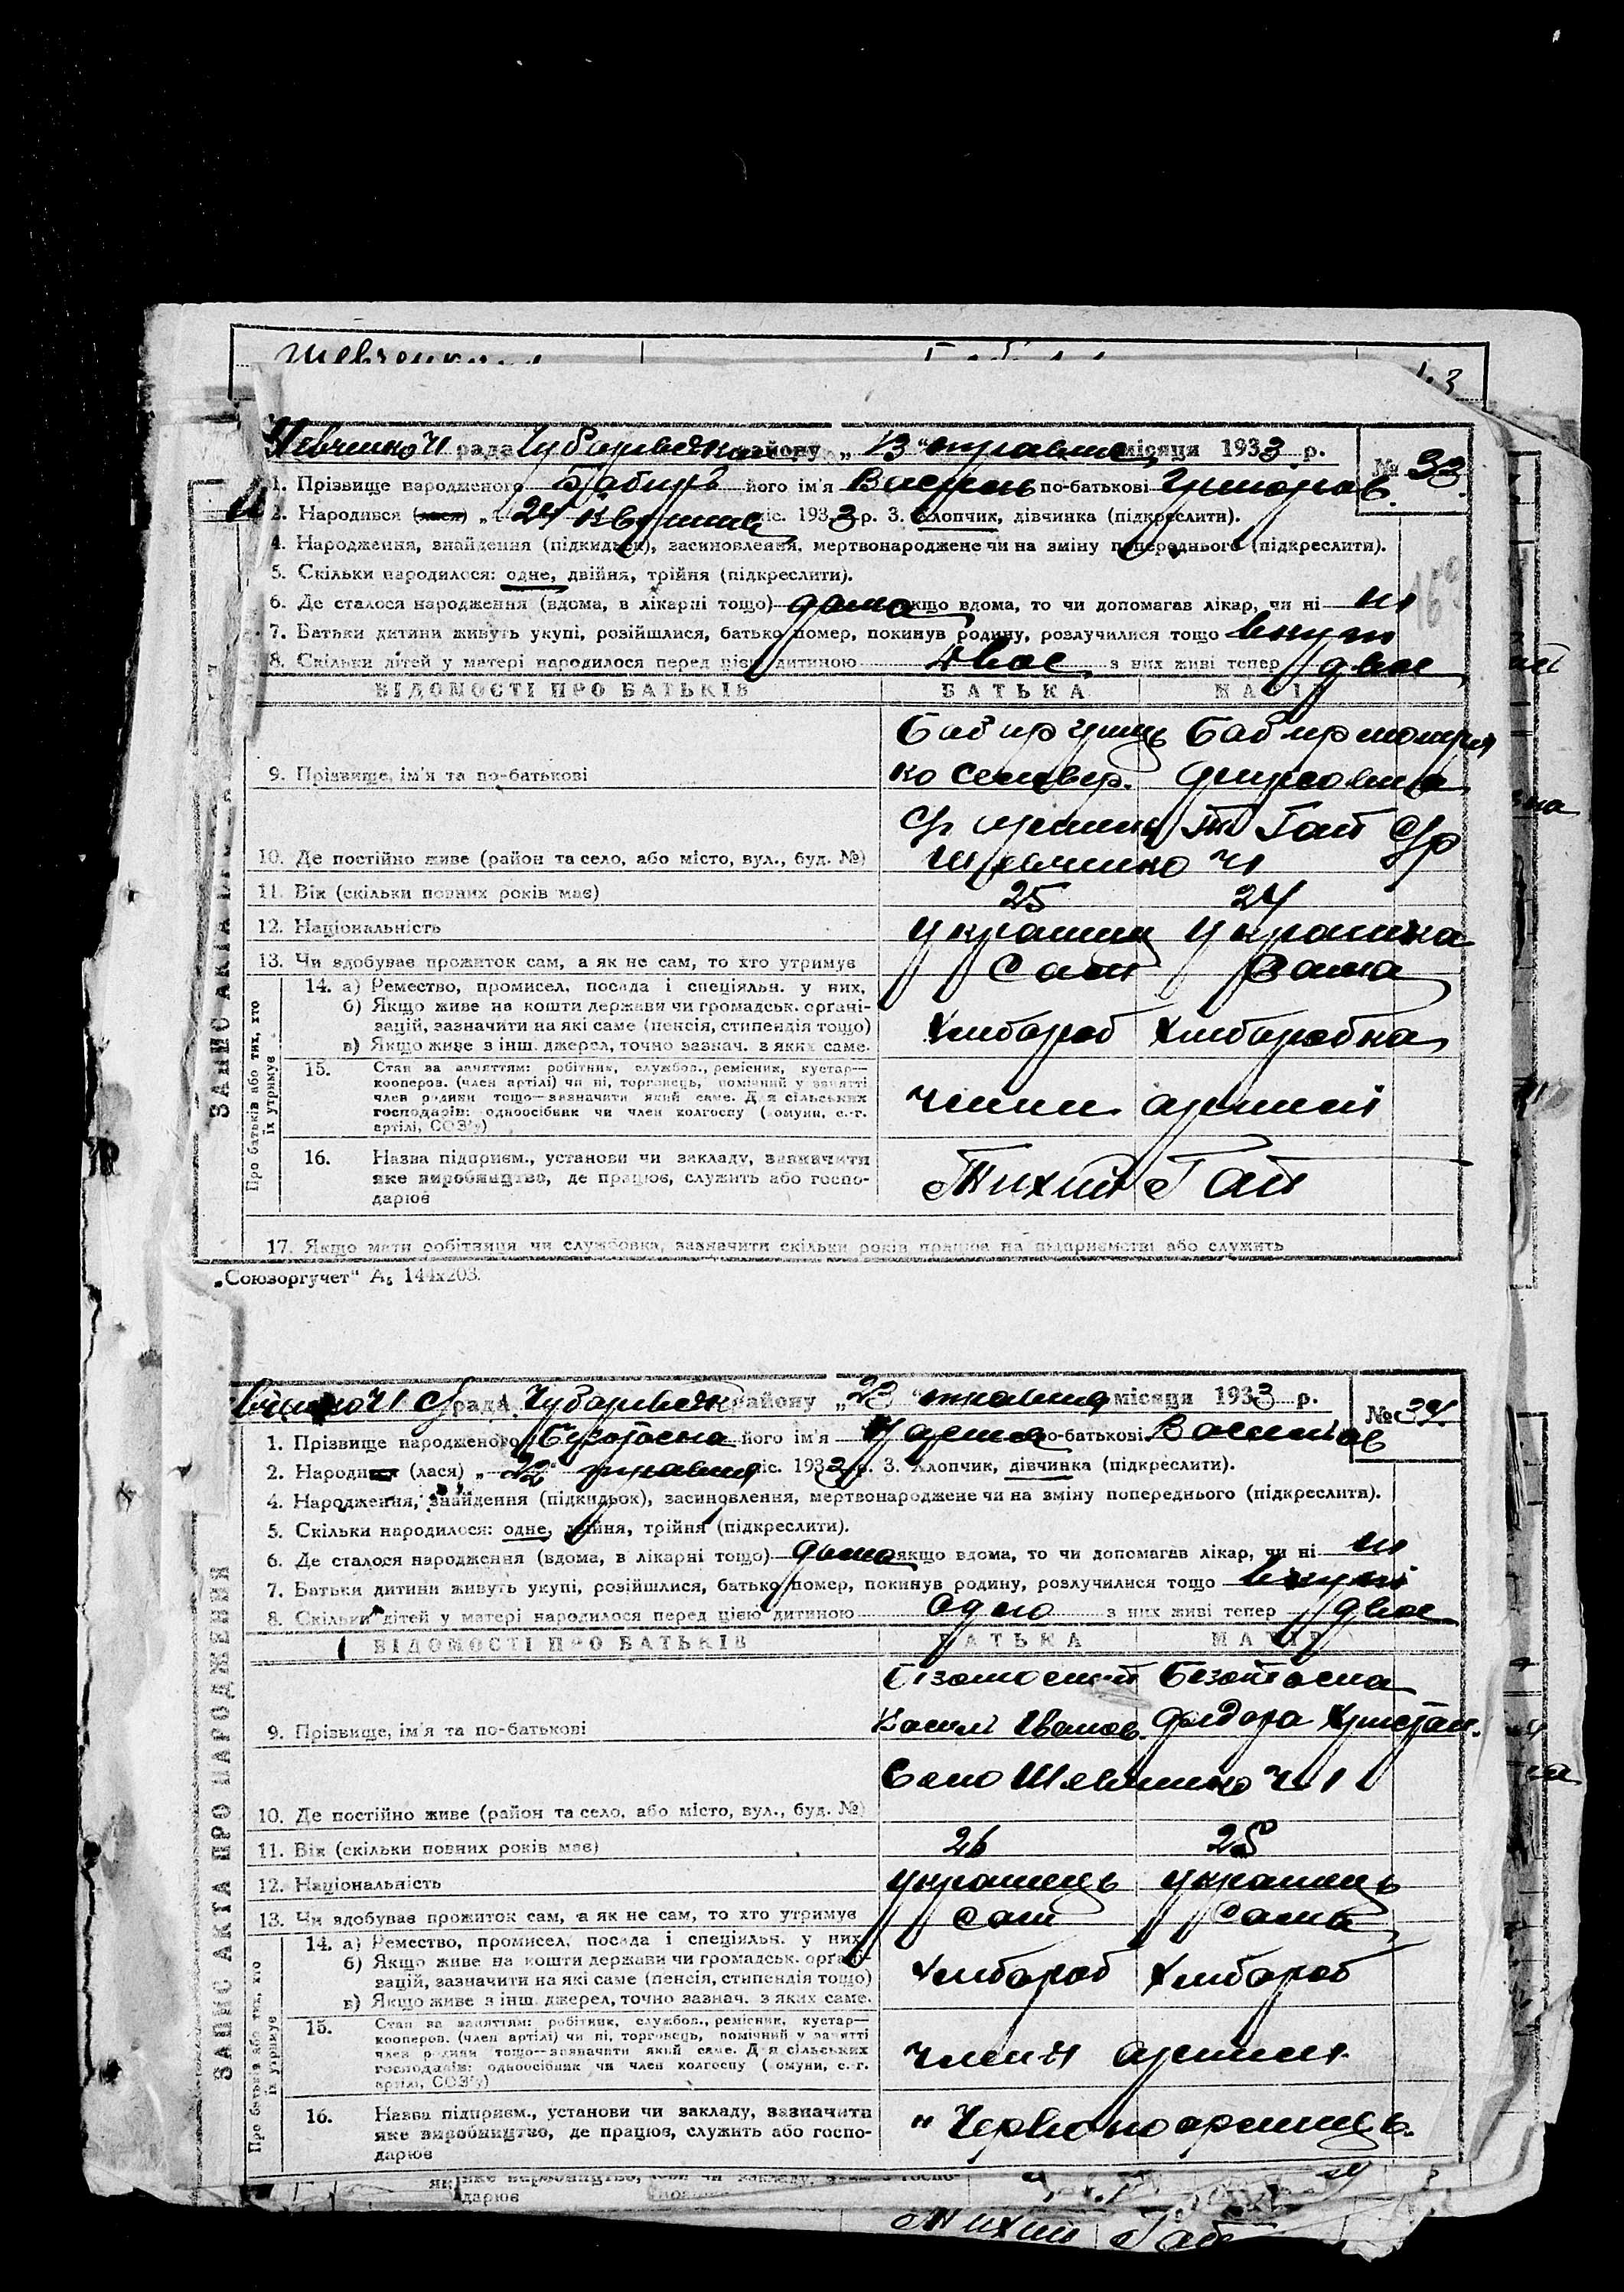 Шевченко
43
Шевченко Ч1 рада Чубарівськ району „13“ травня місяця 1933 р.
№ 33.
1. Прізвище народженого Бабир його ім'я Василь по-батькові Григоров.
2. Народився (лася) „24 квітня міс. 1933 р. 3. Хлопчик, дівчинка (підкреслити).
4. Народження, знайдення (підкидьок), засиновлення, мертвонароджене чи на зміну попереднього (підкреслити).
5. Скільки народилося: одне, двійня, трійня (підкреслити).
6. Де сталося народження (вдома, в лікарні тощо) дома якщо вдома, то чи допомагав лікар, чи ні ні
7. Батьки дитини живуть укупі, розійшлися, батько помер, покинув родину, розлучилися тощо вкупі
8. Скільки дітей у матері народилося перед цією дитиною двое з них живі тепер двое
ВІДОМОСТІ ПРО БАТЬКІВ БАТЬКА МАТІР
9. Прізвище, ім'я та по-батькові
10. Де постійно живе (район та село, або місто, вул., буд. №)
11. Вік (скільки повних років має) 25 24
12. Національність Українець Українка
13. Чи здобуває прожиток сам, а як не сам, то хто утримує Сам Сама
ЗАПИС АКТА
Про батьків або тих, хто їх утримує
14. а) Ремество, промисел, посада і спеціяльн. у них.
б) Якщо живе на кошти держави чи громадськ. органі-
зацій, зазначити на які саме (пенсія, стипендія тощо)
в) Якщо живе з інш. джерел, точно зазнач. з яких саме.
Хлібороб Хліборобка
15. Стан за заняттям: робітник, службов., ремісник, кустар—
кооперов. (член артілі) чи ні, торговець, помічний у занятті
член родини тощо—зазначити який саме. Для сільських
господарів: одноосібник чи член колгоспу (комуни, с.-г.
артілі, СОЗ'у)
члени артілі
16. Назва підприєм., установи чи закладу, зазначити
яке виробництво, де працює, служить або госпо-
дарює
Тихий Гай
17. Якщо мати робітниця чи службовка, зазначити скільки років працює на підприємстві або служить
„Союзоргучет“ А₅ 144х203.
Ч1 С/рада Чубарівськ району „23“ травня місяця 1933 р.
№ 34.
1. Прізвище народженого його ім'я по-батькові Василів
2. Народився (лася) „22“ травня міс. 1933 р. 3. Хлопчик, дівчинка (підкреслити).
4. Народження, знайдення (підкидьок), засиновлення, мертвонароджене чи на зміну попереднього (підкреслити).
5. Скільки народилося: одне, двійня, трійня (підкреслити).
6. Де сталося народження (вдома, в лікарні тощо) дома якщо вдома, то чи допомагав лікар, чи ні ні
7. Батьки дитини живуть укупі, розійшлися, батько помер, покинув родину, розлучилися тощо вкупі
8. Скільки дітей у матері народилося перед цією дитиною одно з них живі тепер двое
ВІДОМОСТІ ПРО БАТЬКІВ БАТЬКА МАТІР
Безотосний Безотосна
9. Прізвище, ім'я та по-батькові Василь Іванов. Федора Христан.
Село Шевченко Ч1
10. Де постійно живе (район та село, або місто, вул., буд. №)
11. Вік (скільки повних років має) 26 25
12. Національність українець українець
13. Чи здобуває прожиток сам, а як не сам, то хто утримує сам сама
ЗАПИС АКТА ПРО НАРОДЖЕННЯ
Про батьків або тих, хто їх утримує
14. а) Ремество, промисел, посада і спеціяльн. у них
б) Якщо живе на кошти держави чи громадськ. органі-
зацій, зазначити на які саме (пенсія, стипендія тощо)
в) Якщо живе з інш. джерел, точно зазнач. з яких саме.
Хлібороб Хлібороб
15. Стан за заняттям: робітник, службов., ремісник, кустар—
кооперов. (член артілі) чи ні, торговець, помічний у занятті
член родини тощо—зазначити який саме. Для сільських
господарів: одноосібник чи член колгоспу (комуни, с.-г.
артілі, СОЗ'у)
члени артілі
16. Назва підприєм., установи чи закладу, зазначити
яке виробництво, де працює, служить або госпо-
дарює
„Червоноармієць.
дарює
Тихий Гай